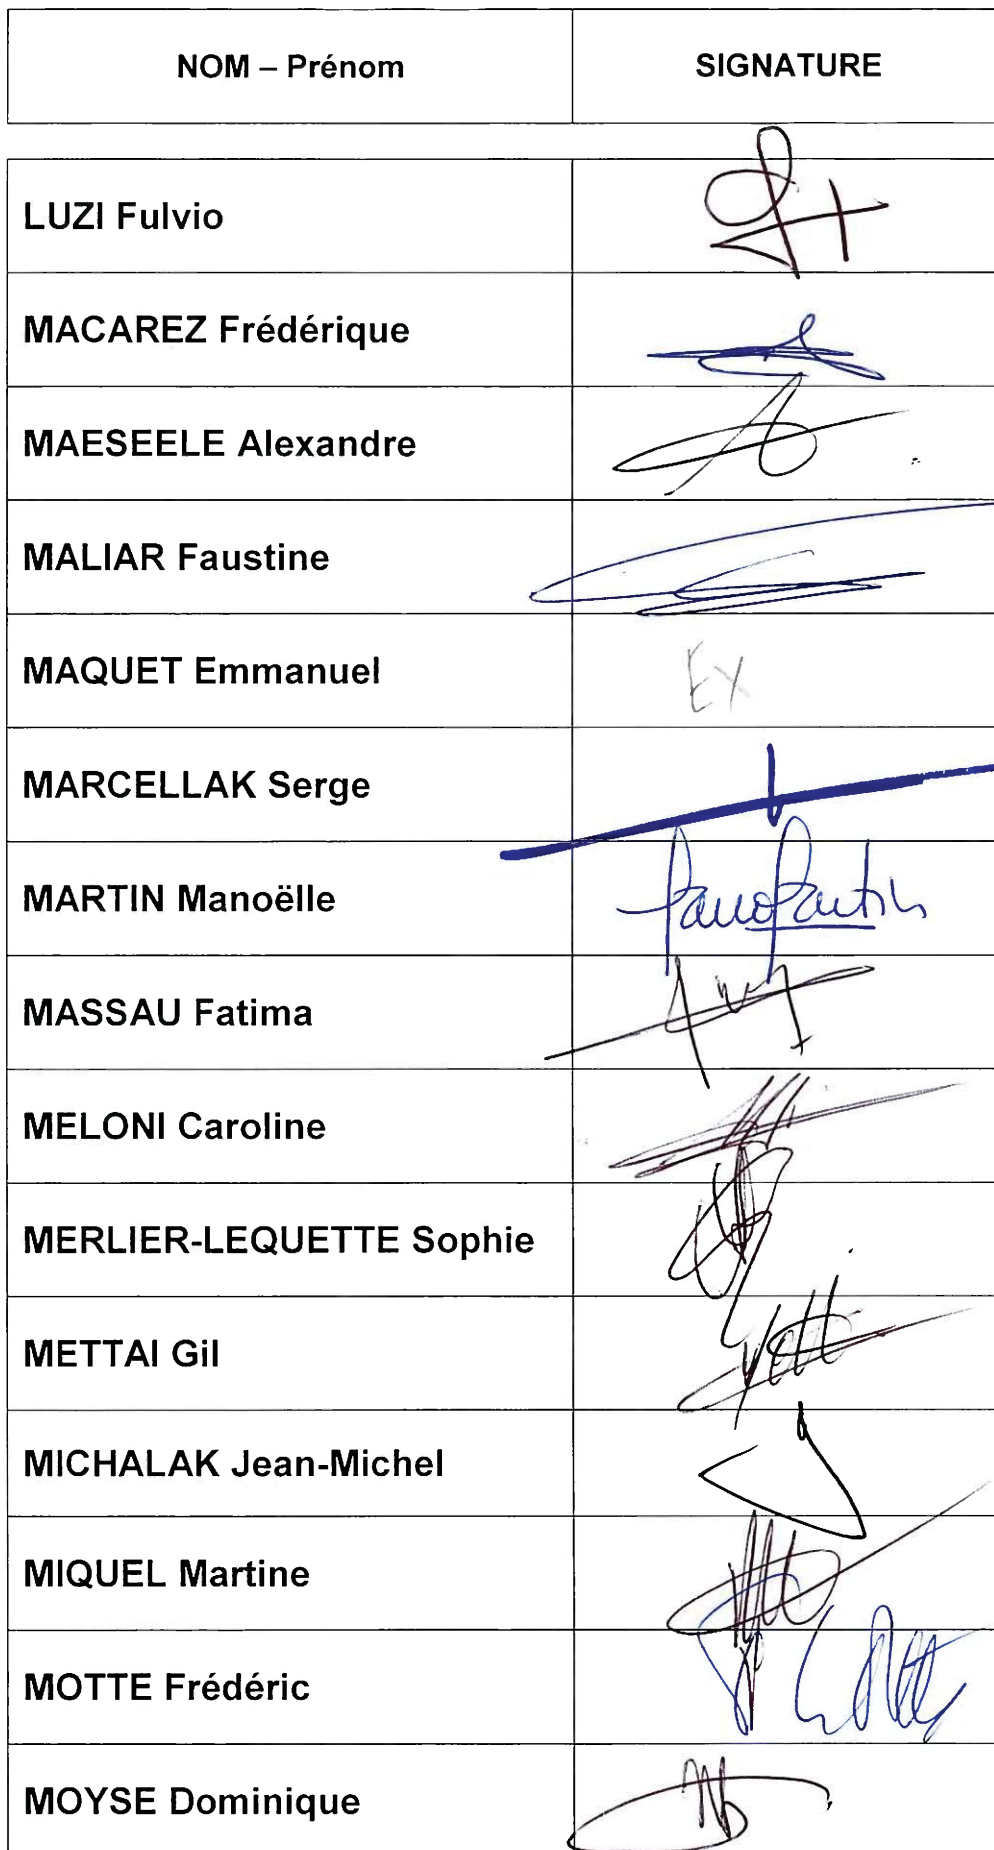 NOM – Prénom SIGNATURE
LUZI Fulvio
MACAREZ Frédérique
MAESEELE Alexandre
MALIAR Faustine
MAQUET Emmanuel EX
MARCELLAK Serge
MARTIN Manoëlle
MASSAU Fatima
MELONI Caroline
MERLIER-LEQUETTE Sophie
METTAI Gil
MICHALAK Jean-Michel
MIQUEL Martine
MOTTE Frédéric
MOYSE Dominique